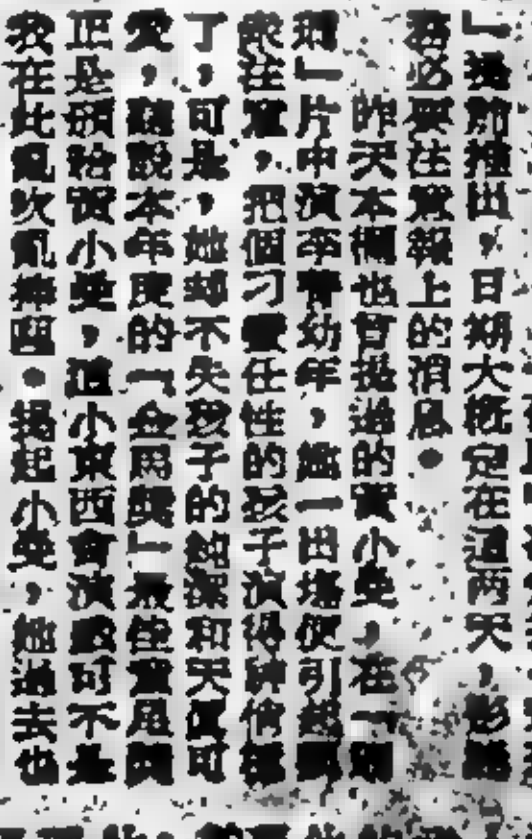 」揭飾推出，日期大概定在這兩天，影
務必要注意報上的消息。
昨天本欄也曾提過的賈小堃，在一
」片中演李菁幼年，一出場便引起
注意，把個刁蠻任性的孩子演得神俏
了，可是，她却不失孩子的純潔和天真可
愛，聽說本年度的「金馬獎」最佳童星獎
正是頒給賈小堃，這小東西會演戲可不是
我在此亂吹亂捧囉。提起小堃，她過去也